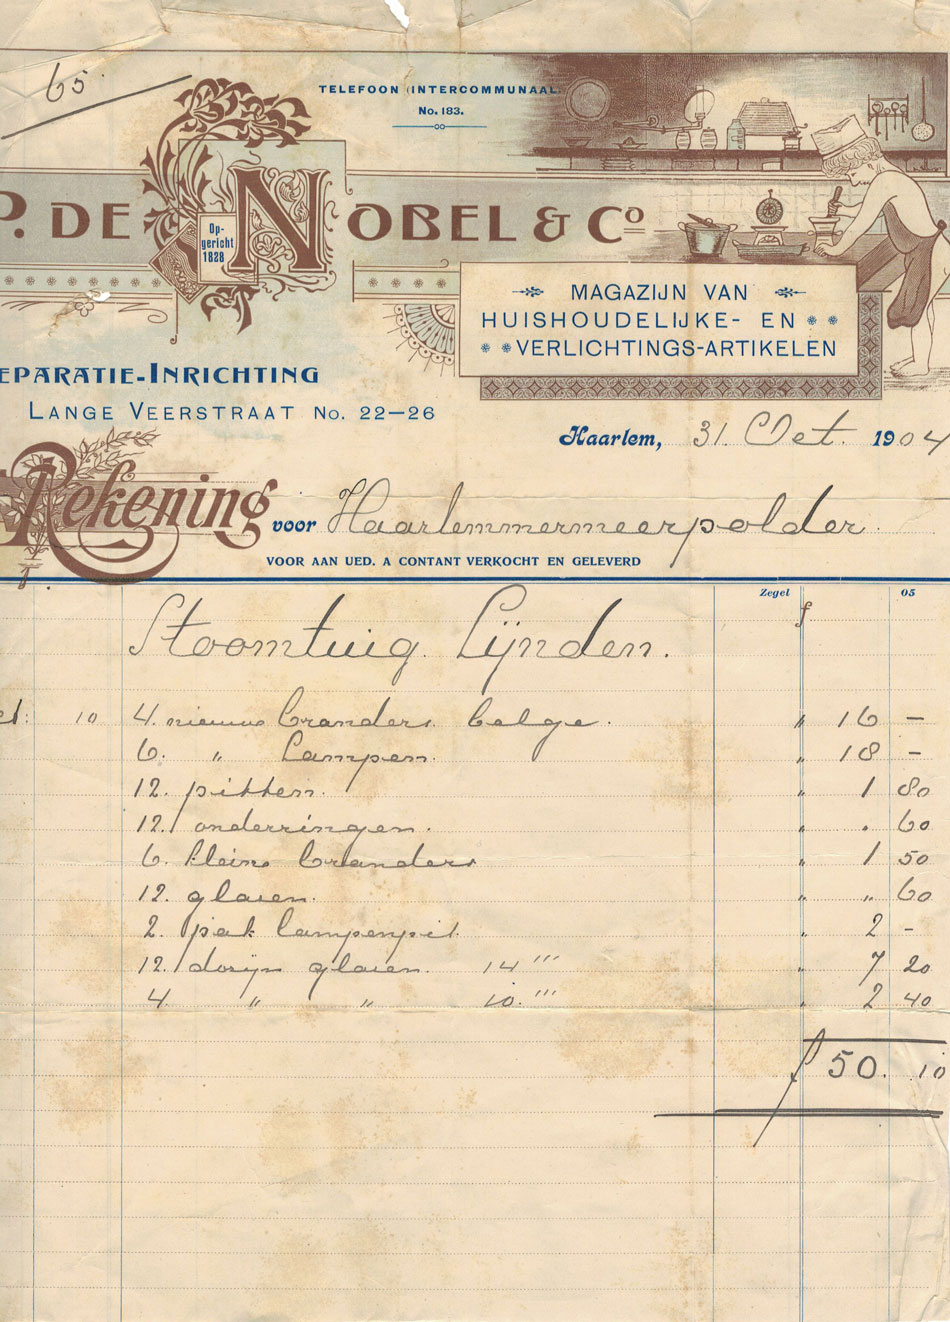 65.
TELEFOON (INTERCOMMUNAAL)
No. 183.
P. DE NOBEL & Co
Op-
gericht
1828
MAGAZIJN VAN
HUISHOUDELIJKE- EN
VERLICHTINGS-ARTIKELEN
EPARATIE-INRICHTING
LANGE VEERSTRAAT No. 22-26
Haarlem, 31. Oct. 1904
Rekening voor Haarlemmermeerpolder.
VOOR AAN UED. A CONTANT VERKOCHT EN GELEVERD
Zegel 05
Stoomtuig Lijnden. f
10 4. nieuwe branders belge. " 16 –
6. " Lampen. " 18 –
12. pitten. " 1 80
12. onderringen. " . 60
6. kleine branders " 1 50
12. glazen. " " 60
2. pak lampenpit " 2 -
12. dozijn glazen. 14''' " 7 20
4 " " 10.''' " 2 40
f 50. 10